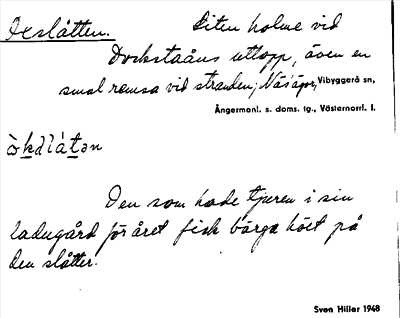 Oxslåtten. Liten holme vid
Dockstaåns utlopp, även en
smal remsa vid stranden; Näsåker, Vibyggerå sn,
Ångermanl. s. doms. tg., Västernorrl. l.
Den som hade tjuren i sin
ladugård för året fick bärga höet på
den slåtter.
Sven Hiller 1948